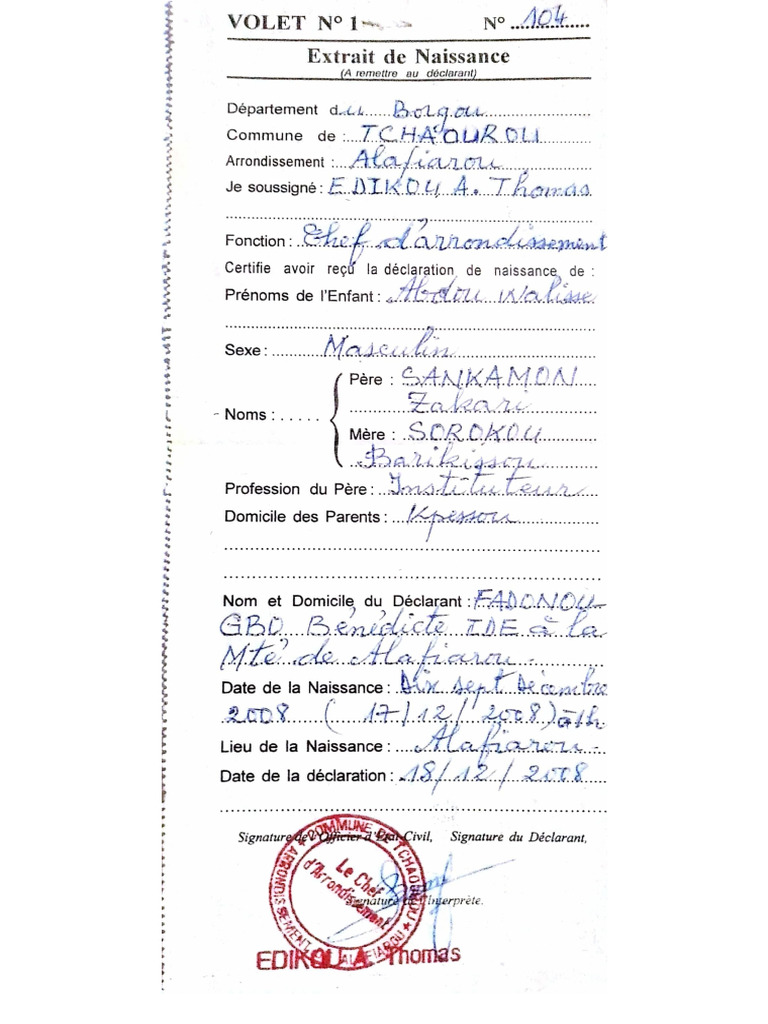 VOLET N° 1 N° 104
Extrait de Naissance
(A remettre au déclarant)
Département du Borgou
Commune de : TCHAOUROU
Arrondissement : Alafiarou
Je soussigné : EDIKOU A. Thomas
Fonction : Chef d'arrondissement
Certifie avoir reçu la déclaration de naissance de :
Prénoms de l'Enfant : Abdou Walisse
Sexe : Masculin
Père : SANKAMON
Zakari
Noms : .....
Mère : SOROKOU
Barikissou
Profession du Père : Instituteur
Domicile des Parents : Kpessou
Nom et Domicile du Déclarant : FADONOU-
GBO Bénédicte IDE à la
Mté de Alafiarou.
Date de la Naissance : Dix sept Décembre
2008 (17/12/2008) à 1h
Lieu de la Naissance : Alafiarou
Date de la déclaration : 18/12/2008
Signature de l'Officier d'Etat-Civil, Signature du Déclarant,
COMMUNE DE TCHAOUROU
ARRONDISSEMENT ALAFIAROU
Le Chef
d'Arrondissement
Signature de l'Interprète.
EDIKOU A Thomas